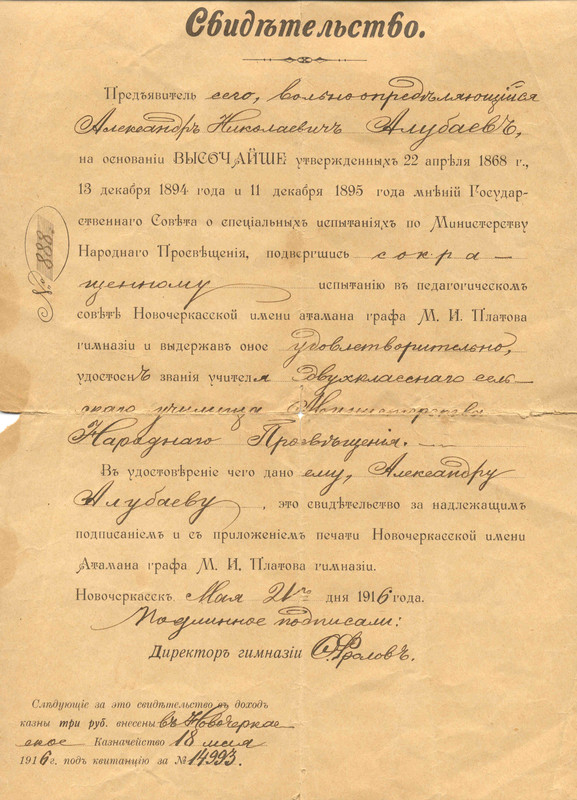 Свидѣтельство.
Предъявитель сего, вольноопредѣляющійся
Александръ Николаевичъ Алубаевъ,
на основаніи ВЫСОЧАЙШЕ утвержденныхъ 22 апрѣля 1868 г.,
13 декабря 1894 года и 11 декабря 1895 года мнѣній Государ-
ственнаго Совѣта о спеціальныхъ испытаніяхъ по Министерству
Народнаго Просвѣщенія, подвергшись сокра-
щенному испытанію въ педагогическомъ
совѣтѣ Новочеркасской имени атамана графа М. И. Платова
гимназіи и выдержавъ оное удовлетворительно,
удостоенъ званія учителя двухкласснаго сель-
скаго училища Министерства
Народнаго Просвѣщенія.
Въ удостовѣреніе чего дано ему, Александру
Алубаеву, это свидѣтельство за надлежащимъ
подписаніемъ и съ приложеніемъ печати Новочеркасской имени
Атамана графа М. И. Платова гимназіи.
Новочеркасскъ Мая 21го дня 1916 года.
Подлинное подписали:
Директоръ гимназіи Фроловъ.
№ 888
Слѣдующіе за это свидѣтельство въ доходъ
казны три руб. внесены въ Новочеркас
ское Казначейство 18 мая
1916 г. подъ квитанцію за № 14993.